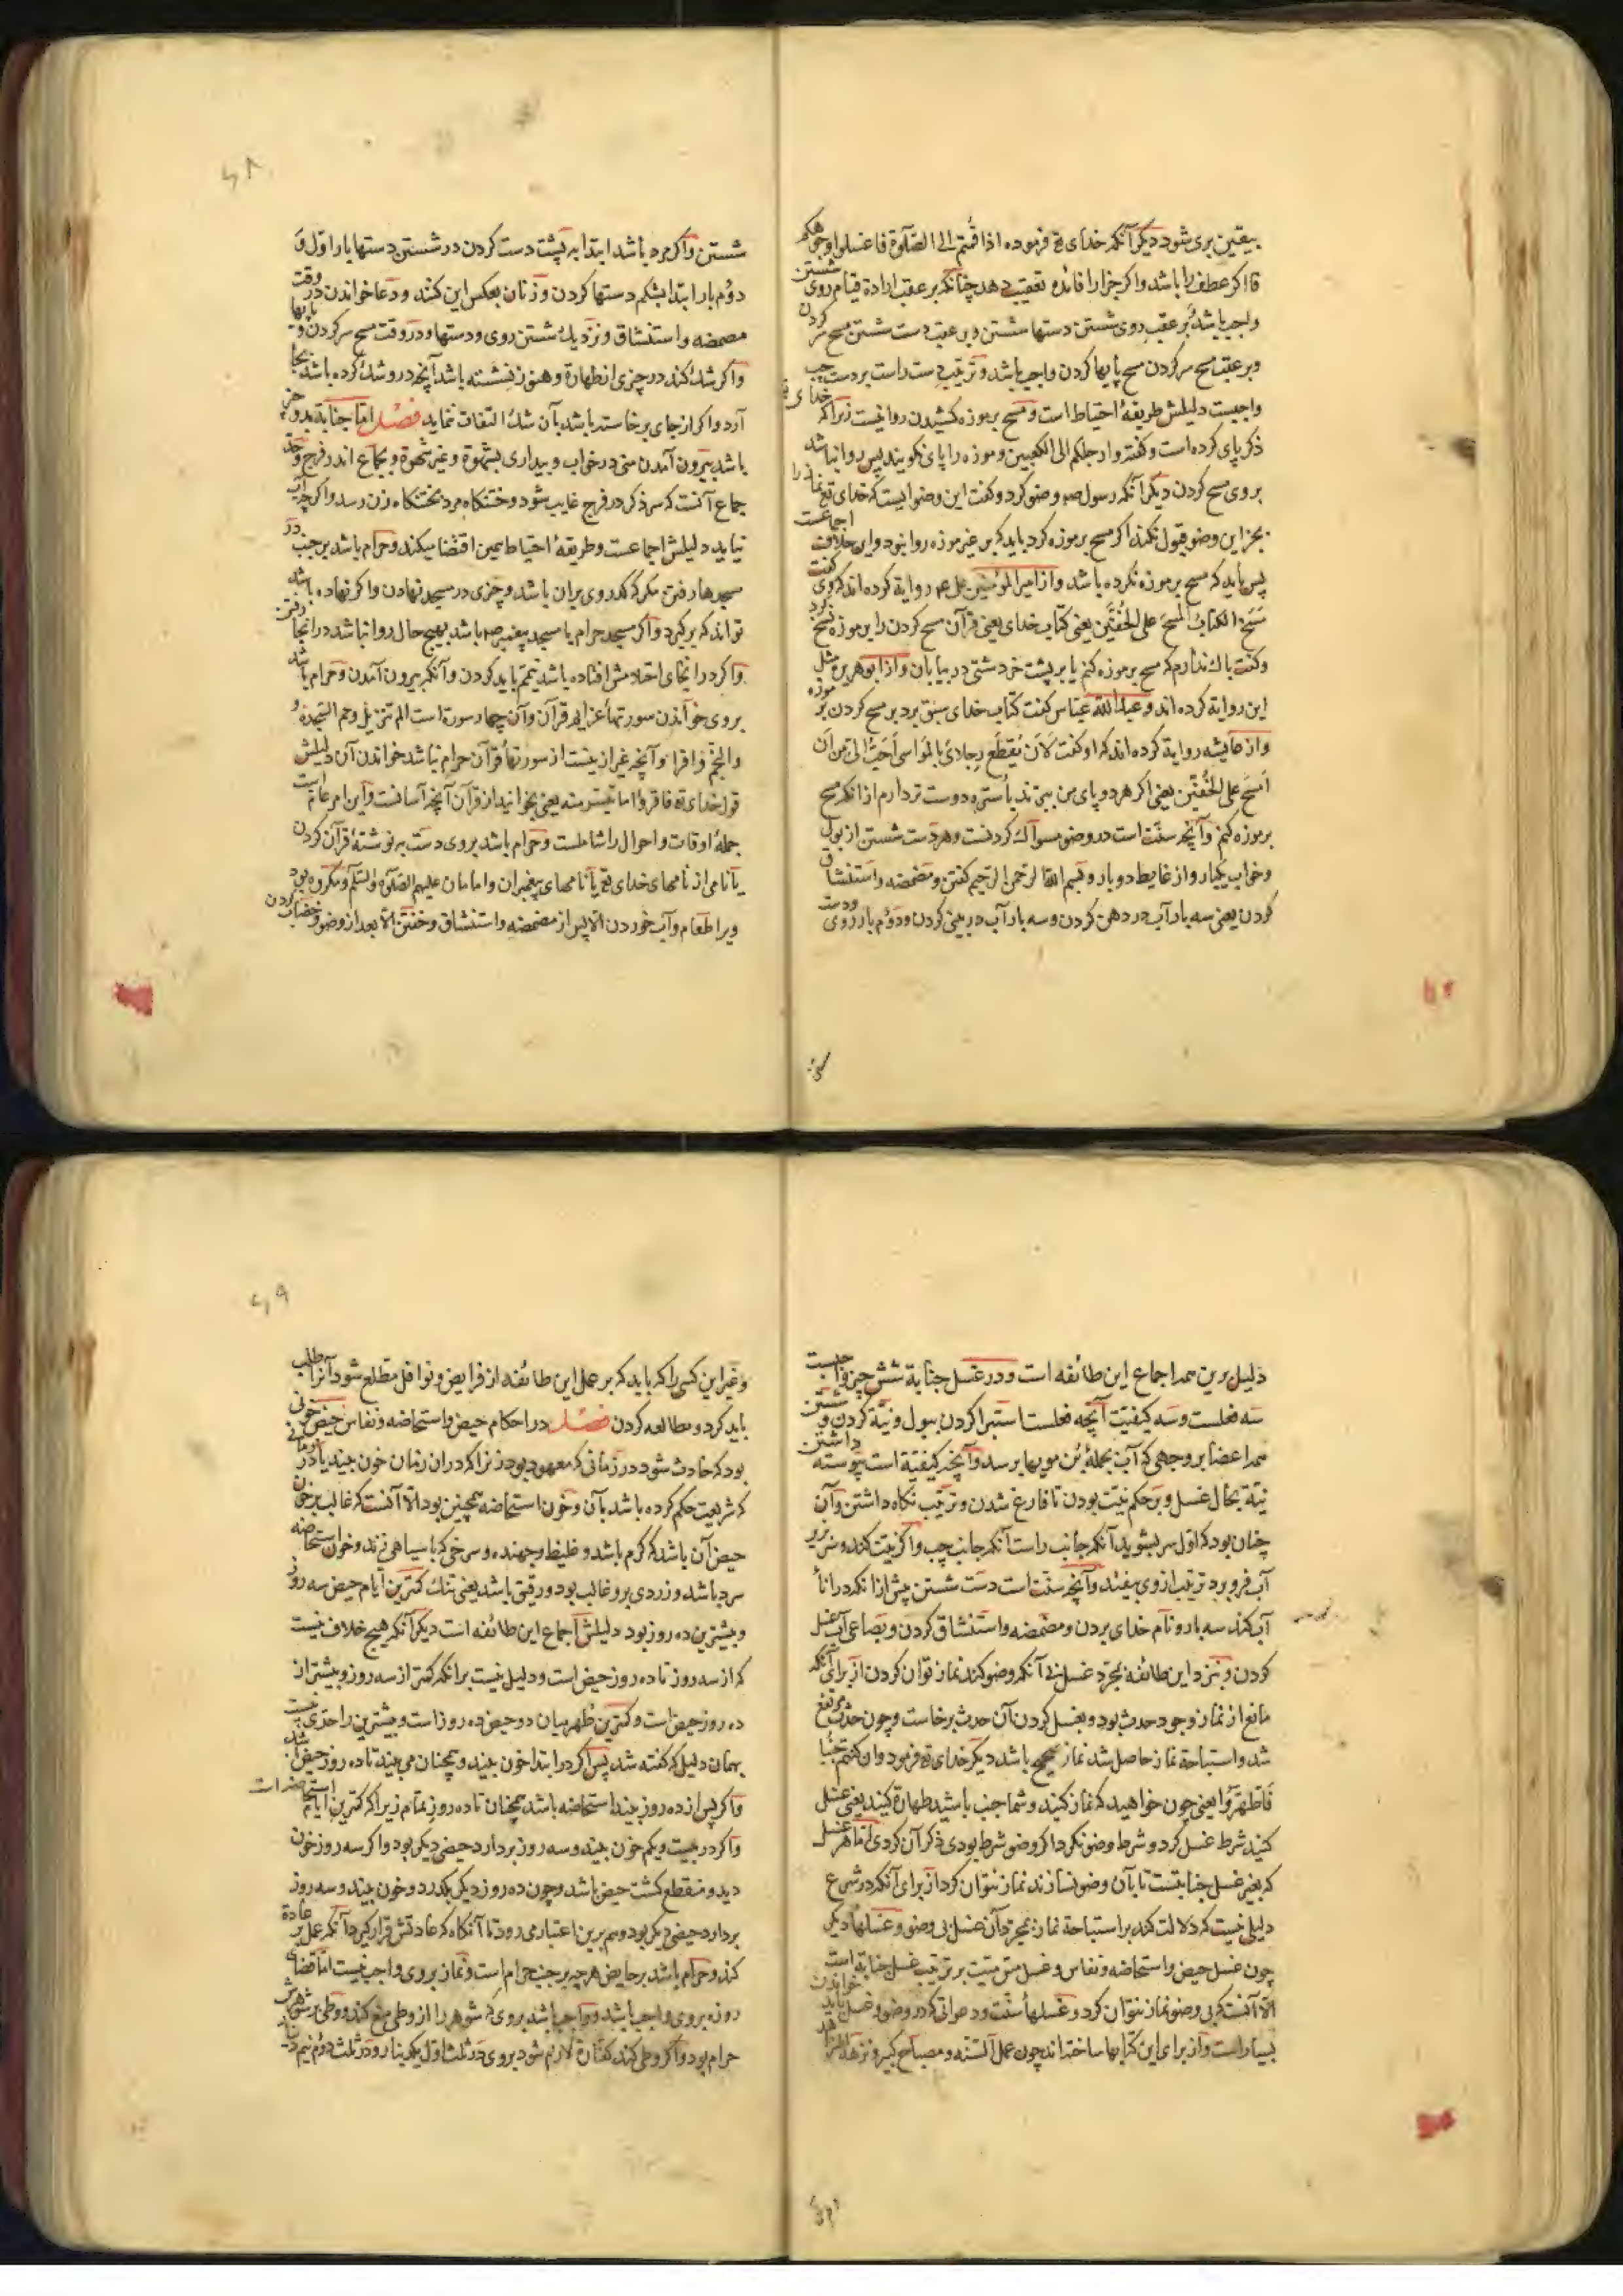 بیقین بری شود دیگر آنکه خدای تع فرموده اذا قمتم الی الصّلوة فاغسلوا وجوهکم
فا اکر عطف را باشد واکر جزا را فائده تعقیب دهد چنانکه بر عقب ارادة قیام روی شستن
واجب باشد بر عقب روی شستن دستها شستن و بر عقب دست شستن مسح سر کردن
وبر عقب مسح سر کردن مسح پایها کردن واجب باشد و ترتیب دست راست بر دست چپ
واجبست دلیلش طریقهٔ احتیاط است و مسح بر موزه کشیدن روا نیست زیرا که خدای تع
ذکر پای کرده است و کفته وارجلکم الی الکعبین و موزه را پای نکویند پس روا نباشد
بروی مسح کردن دیگر آنکه رسول صه وضو کرد و کفت این وضوایست که خدای تع نماز را
بجز این وضو قبول نکند اکر مسح بر موزه کرد باید که بر غیر موزه روا نبود و این خلاف اجماعست
پس باید که مسح بر موزه نکرده باشد و از امیرالمؤمنین علی عم روایة کرده اند که وی کفت
نَسَخَ الکتابُ المسحَ علی الخُفَّین یعنی کتاب خدای یعنی قرآن مسح کردن را بر موزه نسخ کرد
و کفت باک ندارم که مسح بر موزه کنم یا بر پشت خر دشتی در بیابان و از ابوهریره مثل
این روایة کرده اند و عبدالله عباس کفت کتاب خدای سبق برد بر مسح کردن بر موزه
و از عایشه روایة کرده اند که او کفت لَاَن یُقطَع رِجلایَ بالمَواسی اَحَبّ الیّ من اَن
اَمسَحَ علی الخُفّین یعنی اکر هر دو پای من ببرند باستره دوست تر دارم از انکه مسح
بر موزه کنم و آنچه سنّت است در وضو مسواک کردنست و هر دست شستن از بول
و خواب یکبار و از غایط دو بار و بسم الله الرحمن الرحیم کفتن و مضمضه و استنشاق
کردن یعنی سه بار آب در دهن کردن و سه بار آب در بینی کردن و دوم بار روی و دست
شستن و اکر مرد باشد ابتدا به پشت دست کردن در شستن دستها بار اوّل و
دوُم بار ابتدا بشکم دستها کردن و زنان بعکس این کنند و دعا خواندن در وقت
مضمضه و استنشاق و نزدیک شستن روی و دستها و در وقت مسح سر کردن و پایها
و اکر شک کند در چیزی از طهارة و هنوز نشسته باشد آنچه در و شک کرده باشد بجا
آرد و اکر از جای برخاسته باشد بآن شک التفات ننماید فصل امّا جنابة بدو چیز
باشد بیرون آمدن منی در خواب و بیداری بشهوة و غیر شهوة و بجماع اندر فرج و حدّ
جماع آنست که سر ذکر در فرج غایب شود و ختنکاه مرد بختنکاه زن رسد و اکر چه آب
نیاید دلیلش اجماعست و طریقهٔ احتیاط همین اقتضا میکند و حرام باشد بر جنب در
مسجدها رفتن مکر که کذر وی بر ان باشد و چیزی در مسجد نهادن و اکر نهاده باشد
تواند که برکیرد و اکر مسجد حرام یا مسجد پیغمبر صه باشد بهیچ حال روا نباشد در انجا رفتن
و اکر در انجای احتلامش افتاده باشد تیمّم باید کردن و آنکه بیرون آمدن و حرام باشد
بروی خواندن سورتهاء عزایم قرآن و آن چهار سورة است الم تنزیل و حم السّجدة و
والنّجم و اقرا و آنچه غیر از ینست از سورتهاء قرآن حرام نباشد خواندن آن دلیلش
قول خدای تع فاقرؤا ما تیسّر منه یعنی بخوانید از قرآن آنچه آسانست و این امر عام است
جملهٔ اوقات و احوال را شاملست و حرام باشد بروی دست بر نوشتهٔ قرآن کردن
یا نامی از نامهای خدای تع یا نامهای پیغمبران و امامان علیهم الصّلوة والسّلم و مکروه بود
ویرا طعام و آب خوردن الّا پس از مضمضه و استنشاق و خفتن الّا بعد از وضو و خضاب کردن
دلیل برین همه اجماع این طائفه است و در غسل جنابة شش چیز واجبست
سه فعلست و سه کیفیّت آنچه فعلست استبرا کردن ببول و نیّة کردن و شستن
همه اعضا بر وجهی که آب بجملهٔ بُن مویها برسد و آنچه کیفیّة است پیوسته داشتن
نیّة بحال غسل و بر حکم نیّت بودن تا فارغ شدن و ترتیب نکاه داشتن و آن
چنان بود که اوّل سر بشوید آنکه جانب راست آنکه جانب چپ و اکر نیّت کند و سر بزیر
آب فرو برد ترتیب از وی بیفتد و آنچه سنّت است دست شستن پیش از انکه در اناء
آب کند سه بار و نام خدای بردن و مضمضه و استنشاق کردن و بصاعی آب غسل
کردن و نزد این طائفه بمجرّد غسل بی آنکه وضو کند نماز توان کردن از برای آنکه
مانع از نماز وجود حدث بود و بغسل کردن آن حدث برخاست و چون حدث مرتفع
شد و استباحة نماز حاصل شد نماز صحیح باشد دیگر خدای تع فرمود وان کنتم جنبا
فاطّهّروا یعنی چون خواهید که نماز کنید و شما جنب باشید طهارة کنید یعنی غسل
کنید شرط غسل کرد و شرط وضو نکرد اکر وضو شرط بودی ذکر آن کردی امّا هر غسل
که بغیر غسل جنابتست تا بآن وضو نسازند نماز نتوان کرد از برای آنکه در شرع
دلیلی نیست که دلالت کند بر استباحة نماز بمجرّد آن غسل بی وضو و غسلهاء دیگر
چون غسل حیض و استحاضه و نفاس و غسل مسّ میّت بر ترتیب غسل جنابة است
الّا آنست که بی وضو نماز نتوان کرد و غسلهاء سنّت و دعواتی که در وضو و غسل باید خواندن
بسیار است و از برای این کتابها ساخته اند چون عمل السّنة و مصباح کبیر و نزهة
و غیر این کسی را که باید که بر عمل این طائفه از فرایض و نوافل مطّلع شود آنرا طلب
باید کرد و مطالعه کردن فصل در احکام حیض و استحاضه و نفاس حیض خونی
بود که حادث شود در زمانی که معهود بود زنرا که در ان زمان خون بیند یا در زمانی
که شریعت حکم کرده باشد بآن و خون استحاضه همچنین بود الّا آنست که غالب بر خون
حیض آن باشد که کرم باشد و غلیظ و جهنده و سرخی که با سیاهی زند و خون استحاضه
سرد باشد و زردی برو غالب بود و رقیق باشد یعنی تنک کمترین ایّام حیض سه روز
و بیشترین ده روز بود دلیلش اجماع این طائفه است دیگر آنکه هیچ خلاف نیست
که از سه روز تا ده روز حیض است و دلیل نیست برانکه کمتر از سه روز و بیشتر از
ده روز حیض است و کمترین طهر میان دو حیض ده روز است و بیشترین را حدّی نیست
بهمان دلیل که کفته شد پس اکر در ابتدا خون بیند و همچنان می بیند تا ده روز حیض باشد
و اکر پس از ده روز بیند استحاضه باشد همچنان تا ده روز تمام زیرا که کمترین ایّام استحاضه است
و اکر در بیست و یکم خون بیند و سه روز بردارد حیض دیگر بود و اکر سه روز خون
دید و منقطع کشت حیض باشد و چون ده روز دیگر بکذرد و خون بیند و سه روز
بردارد حیض دیگر بود و هم برین اعتبار می رود تا آنکاه که عادتش قرار کیرد آنکه عمل بر عادة
کند و حرام باشد بر حایض هر چه بر جنب حرام است و نماز بروی واجب نیست امّا قضای
روزه بروی واجب باشد و واجب باشد بروی که شوهر را از وطی منع کند و وطی بر شوهرش
حرام بود و اکر وطی کند کفّارة لازم شود بروی در ثلث اوّل یک دینار و در ثلث دوم نیم